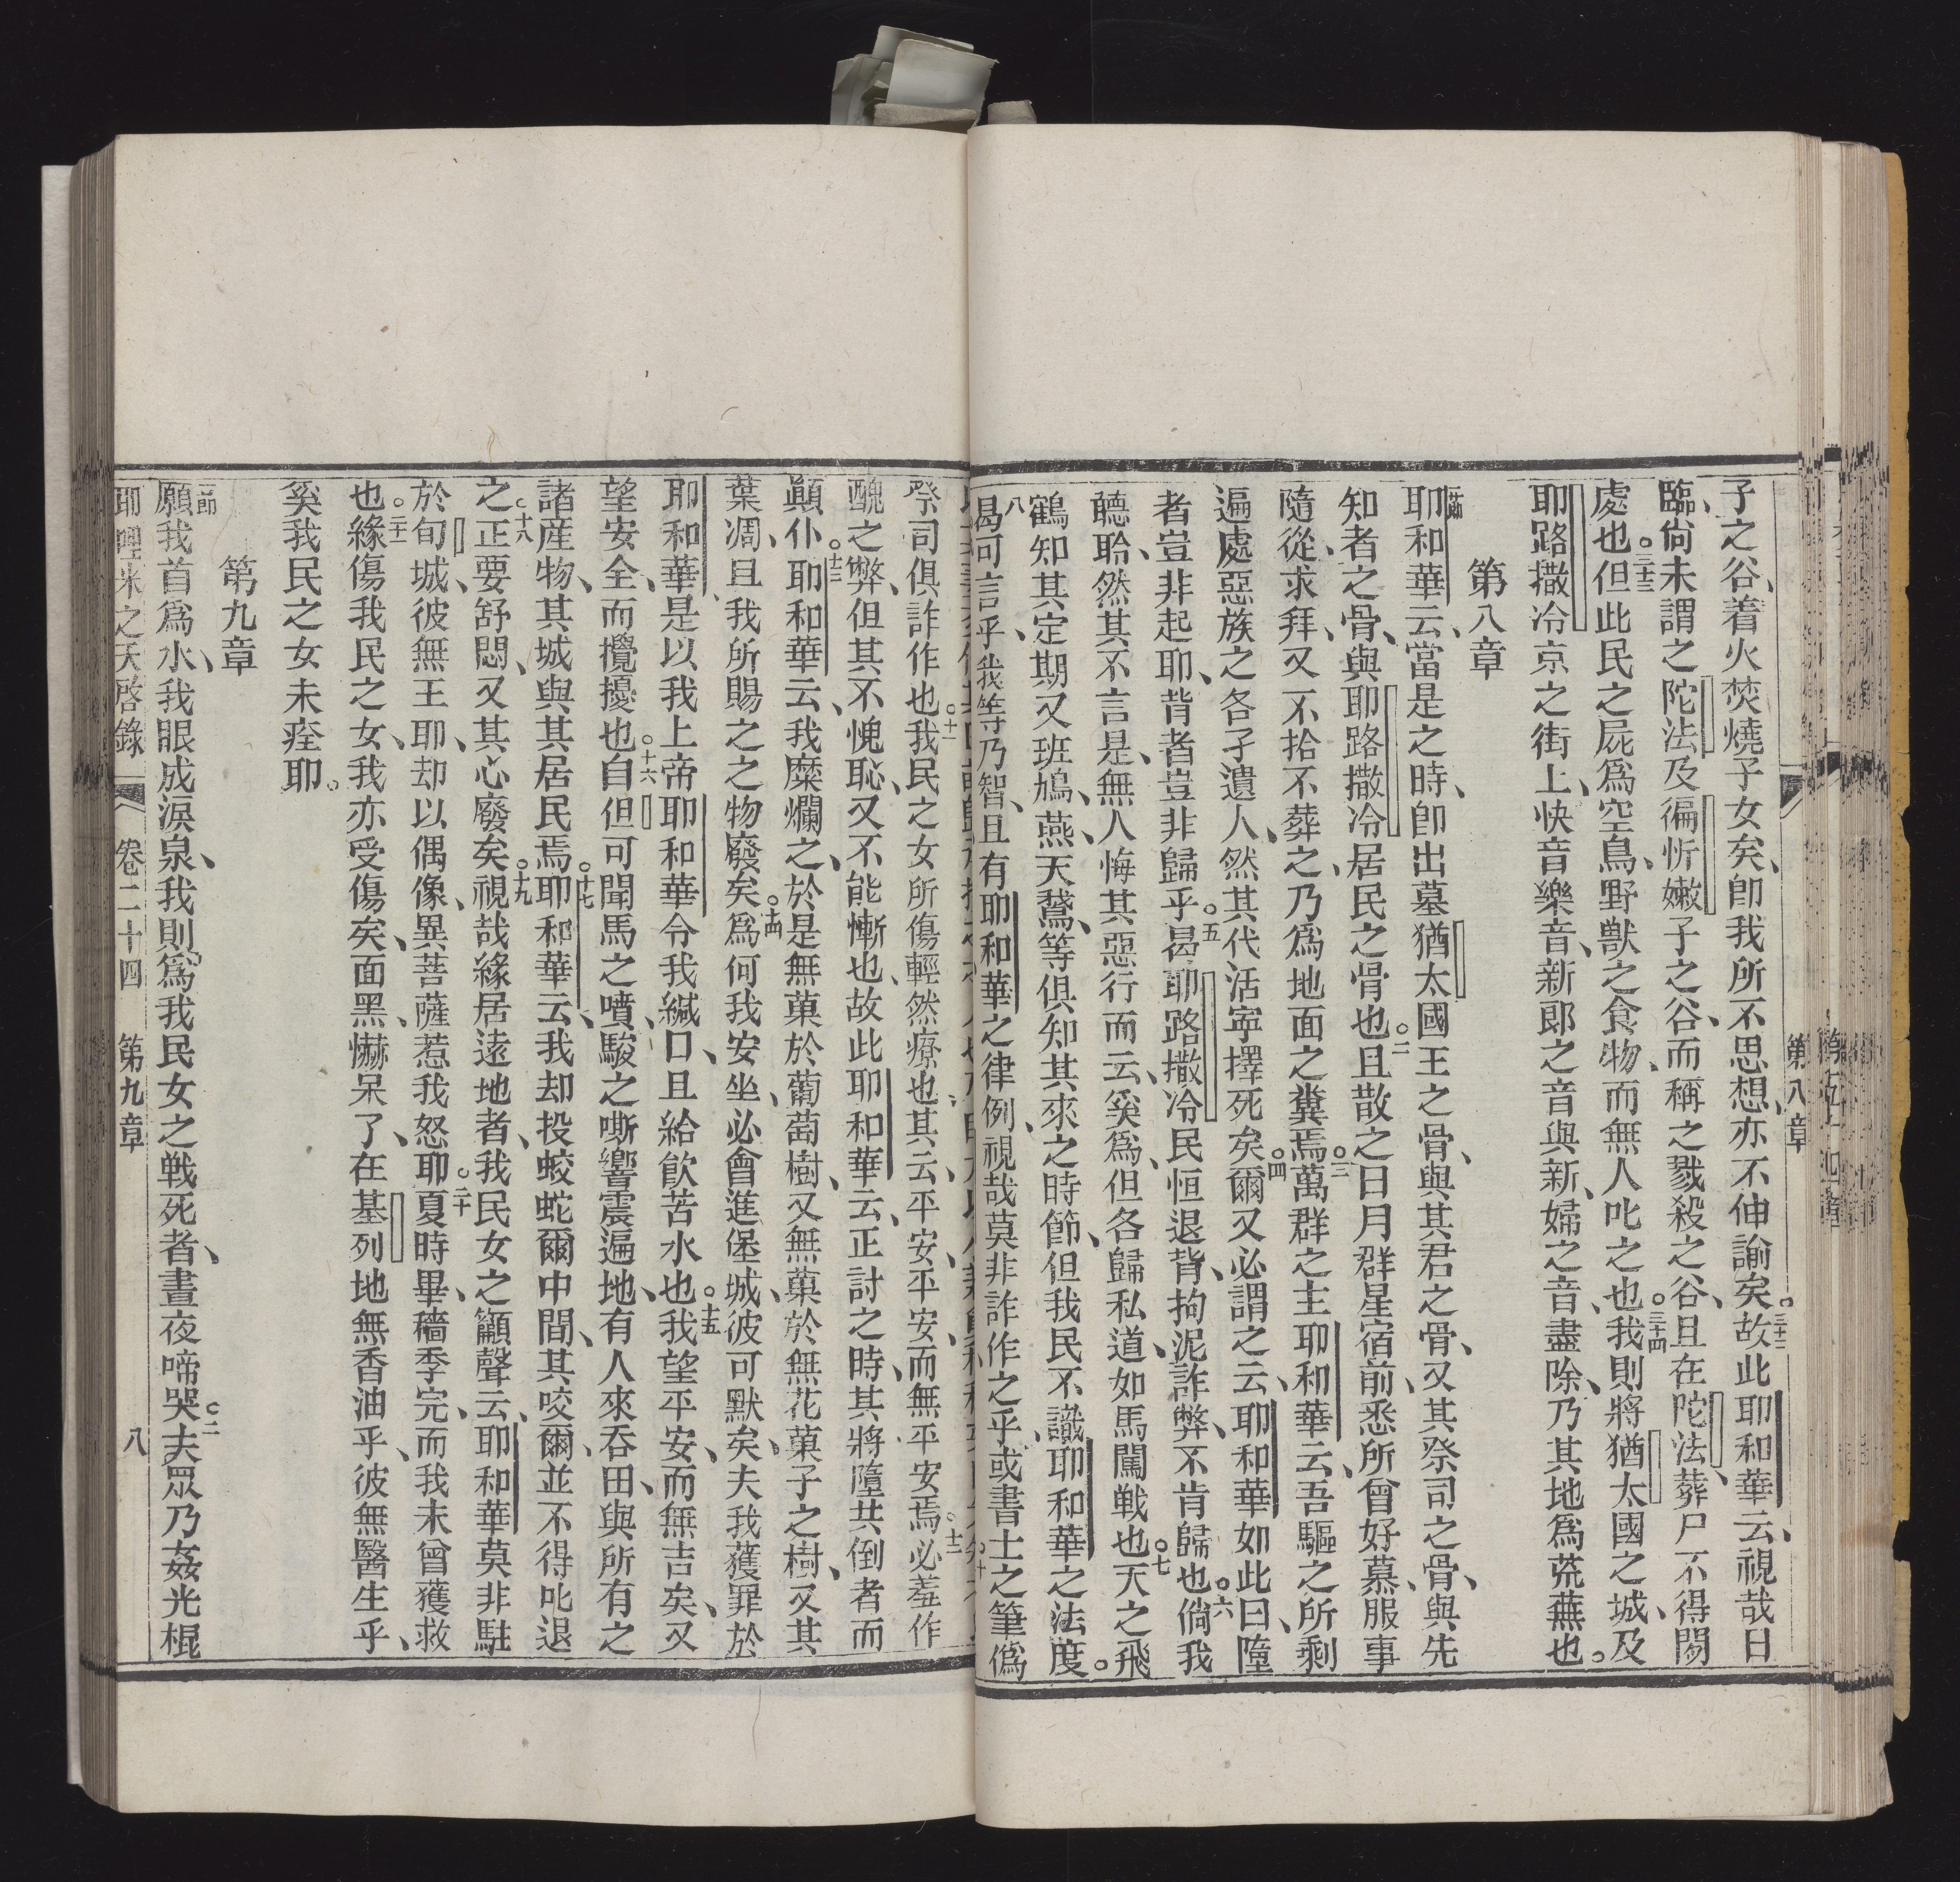 子之谷、着火焚燒子女矣、卽我所不思想、亦不伸諭矣。三十二故此耶和華云、視哉日
臨、尙未謂之陀法及徧忻嫩子之谷、而稱之戮殺之谷、且在陀法、葬尸不得閒
處也。三十三但此民之屍爲空鳥、野獸之食物、而無人叱之也。三十四我則將猶太國之城、及
耶路撒冷京之街上、快音樂音、新郎之音與新婦之音、盡除、乃其地爲荒蕪也。
第八章
一節耶和華云、當是之時、卽出墓猶太國王之骨、與其君之骨、又其祭司之骨、與先
知者之骨、與耶路撒冷居民之骨也。二且散之日月群星宿前、悉所曾好慕、服事
隨從、求拜、又不拾不葬之、乃爲地面之糞焉。三萬群之主耶和華云、吾驅之所剩
遍處惡族之各子遺人、然其代活寧擇死矣。四爾又必謂之云、耶和華如此曰、墮
者豈非起耶、背者豈非歸乎。五曷耶路撒冷民恒退背、拘泥詐弊、不肯歸也。六倘我
聽聆、然其不言是、無人悔其惡行而云、奚爲、但各歸私道、如馬闖戰也。七天之飛
鶴知其定期、又班鳩、燕、天鵞、等俱知其來之時節、但我民不識耶和華之法度。
八曷可言乎、我等乃智、且有耶和華之律例、視哉莫非詐作之乎、或書士之筆僞
祭司俱詐作也。十一我民之女所傷輕然療也、其云、平安、平安、而無平安焉。十二必羞作
醜之弊、但其不愧恥、又不能慚也、故此耶和華云、正討之時、其將墮共倒者而
顚仆。十三耶和華云、我糜爛之、於是無菓於葡萄樹、又無菓於無花菓子之樹、又其
葉凋、且我所賜之之物廢矣。十四爲何我安坐、必會進堡城、彼可默矣、夫我獲罪於
耶和華、是以我上帝耶和華令我緘口、且給飮苦水也。十五我望平安、而無吉矣、又
望安全、而攪擾也。十六自但可聞馬之噴、駿之嘶響震遍地、有人來吞田、與所有之
諸產物、其城與其居民焉。十七耶和華云、我却投蛟蛇爾中間、其咬爾、並不得叱退
之。十八正要舒悶、又其心廢矣。十九視哉緣居遠地者、我民女之籲聲云、耶和華莫非駐
於旬城、彼無王耶、却以偶像、異菩薩惹我怒耶。二十夏時畢、穡季完、而我未曾獲救
也。二十一緣傷我民之女、我亦受傷矣、面黑、懗呆了、在基列地無香油乎、彼無醫生乎、
奚我民之女未痊耶。
第九章
一節願我首爲水、我眼成淚泉、我則爲我民女之戰死者、晝夜啼哭。二夫眾乃姦光棍
耶哩米之天啓錄 卷二十四 第九章 八
第八章